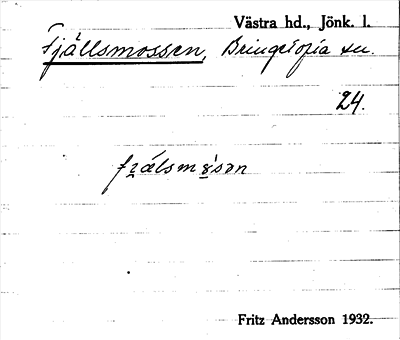 Västra hd., Jönk. l.
Fjällsmossen, Bringetofta sn.
24.
Fritz Andersson 1932.